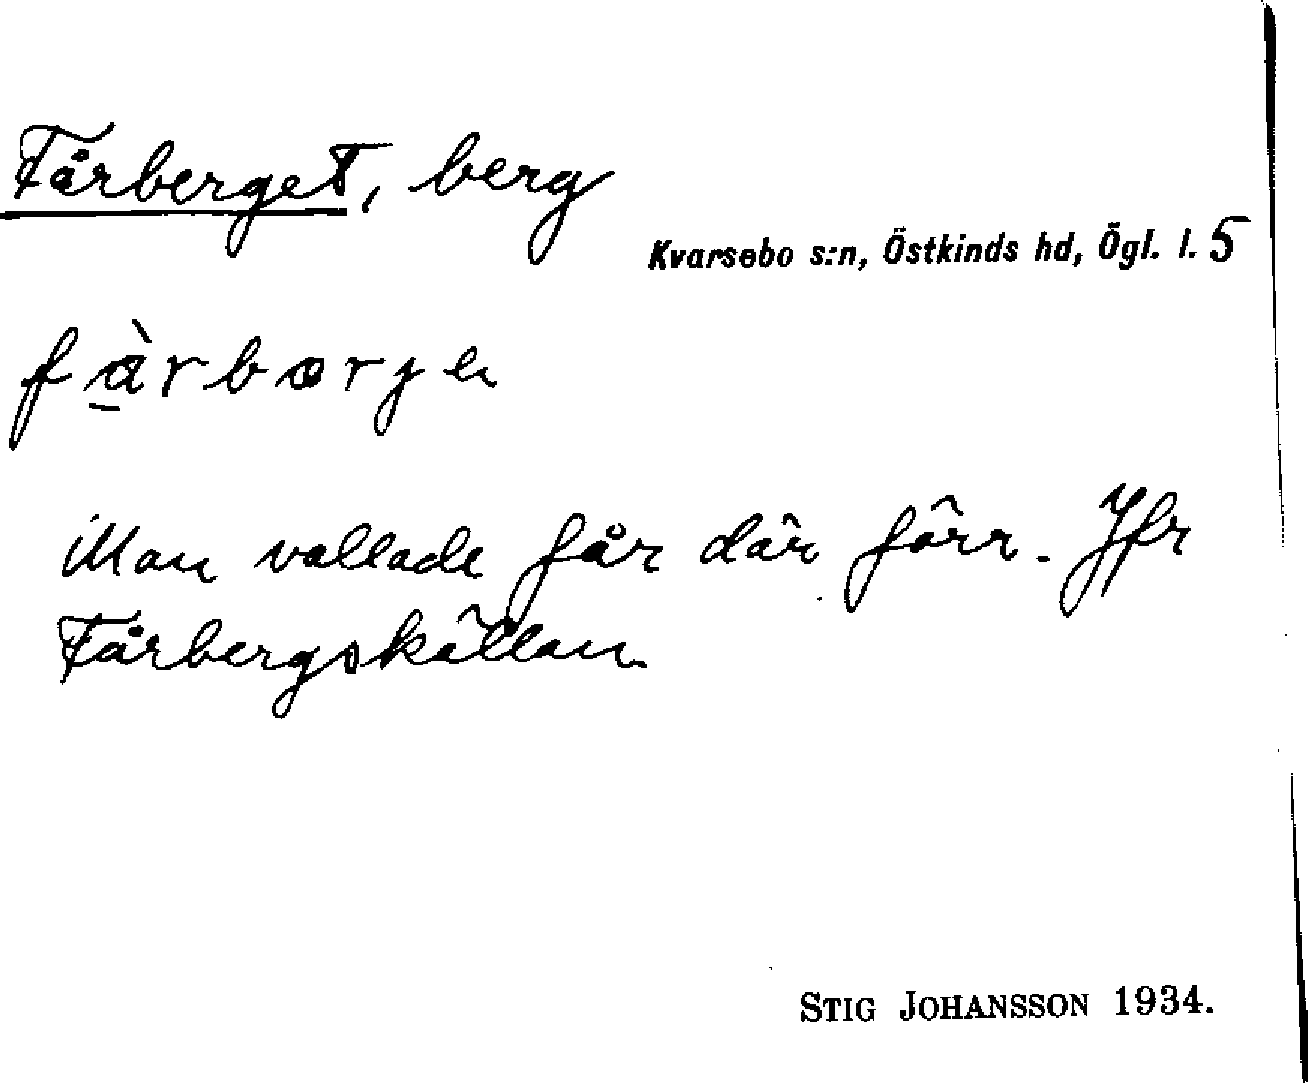 Fårberget, berg
Kvarsebo s:n, Östkinds hd, Ögl. l. 5
Man vallade får där förr. Jfr
Fårbergskällan
STIG JOHANSSON 1934.